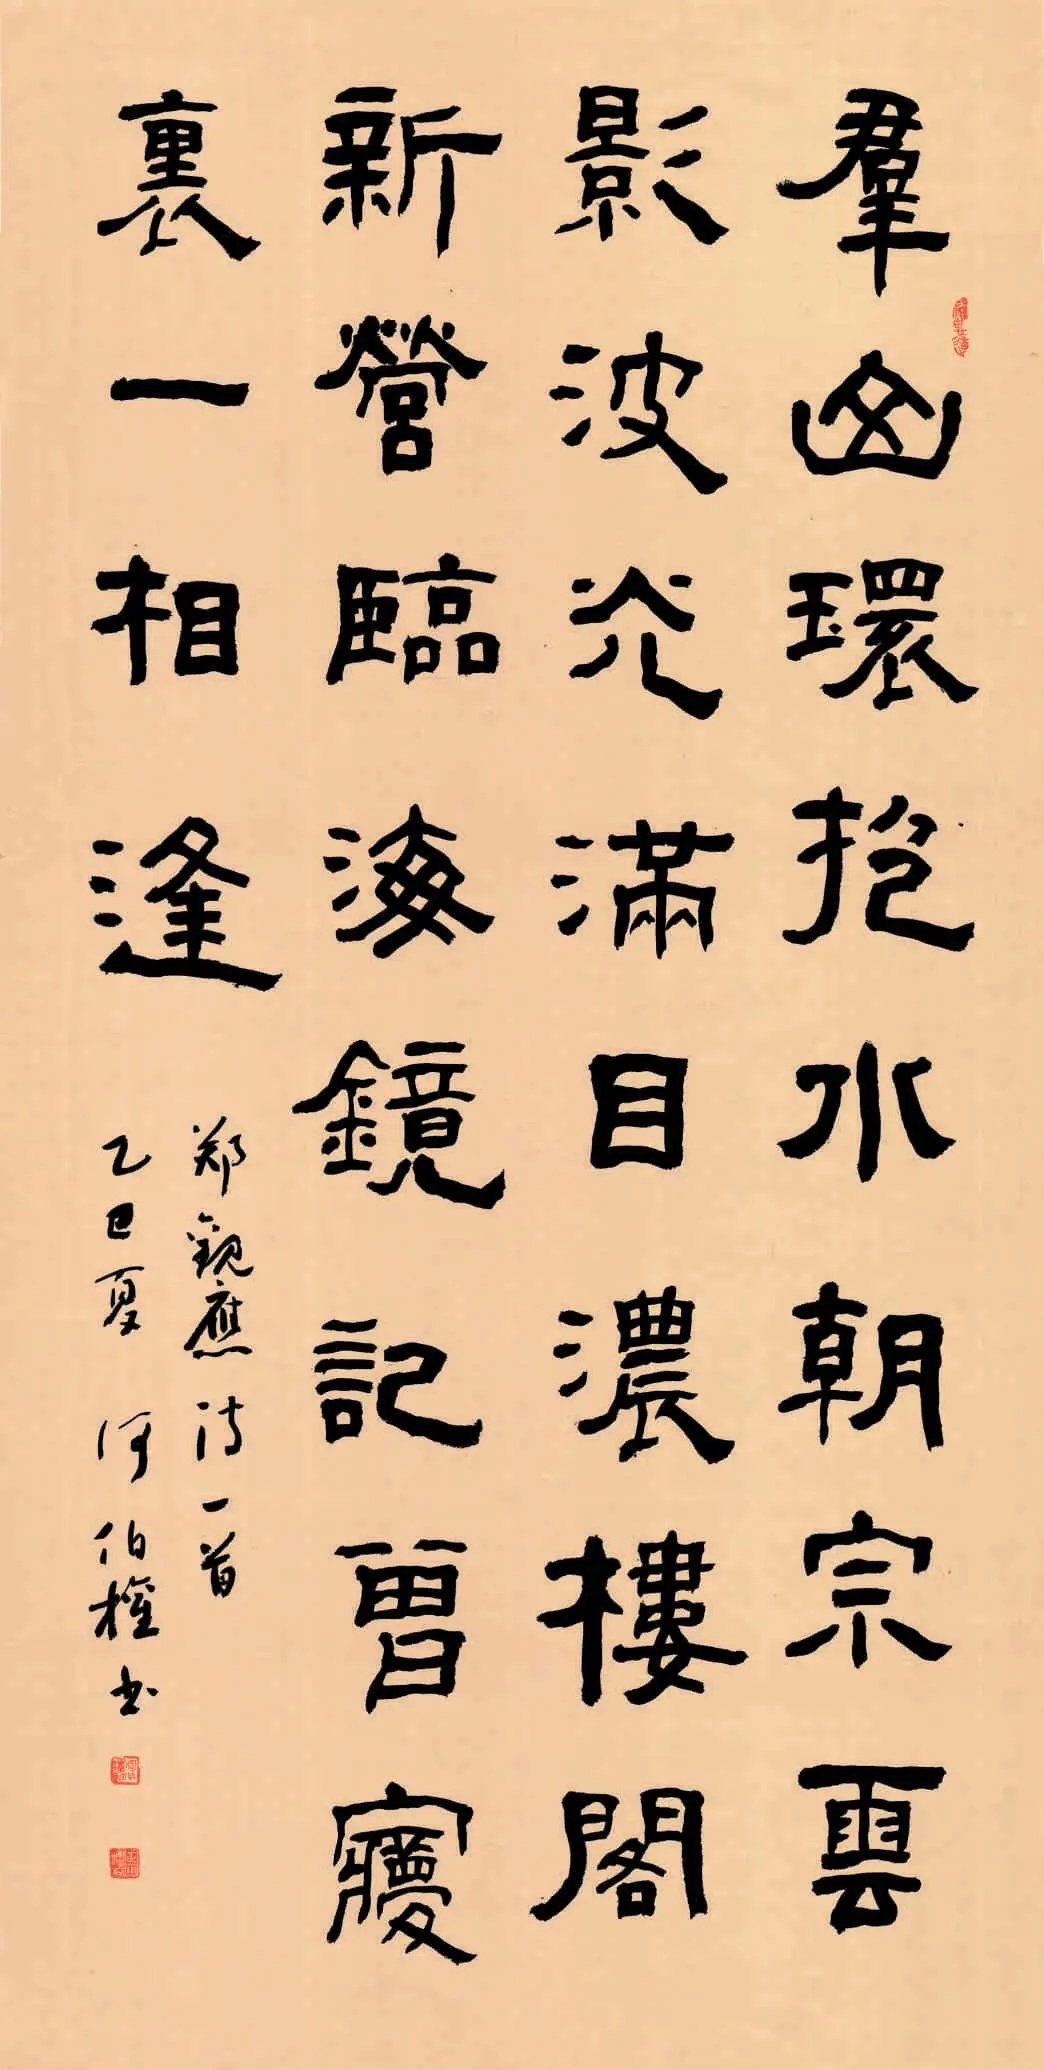 羣山環抱水朝宗雲
影波光滿目濃樓閣
新營臨海鏡記曾㝱
裏一相逢
郑觀應诗一首
乙巳夏 何伯權书